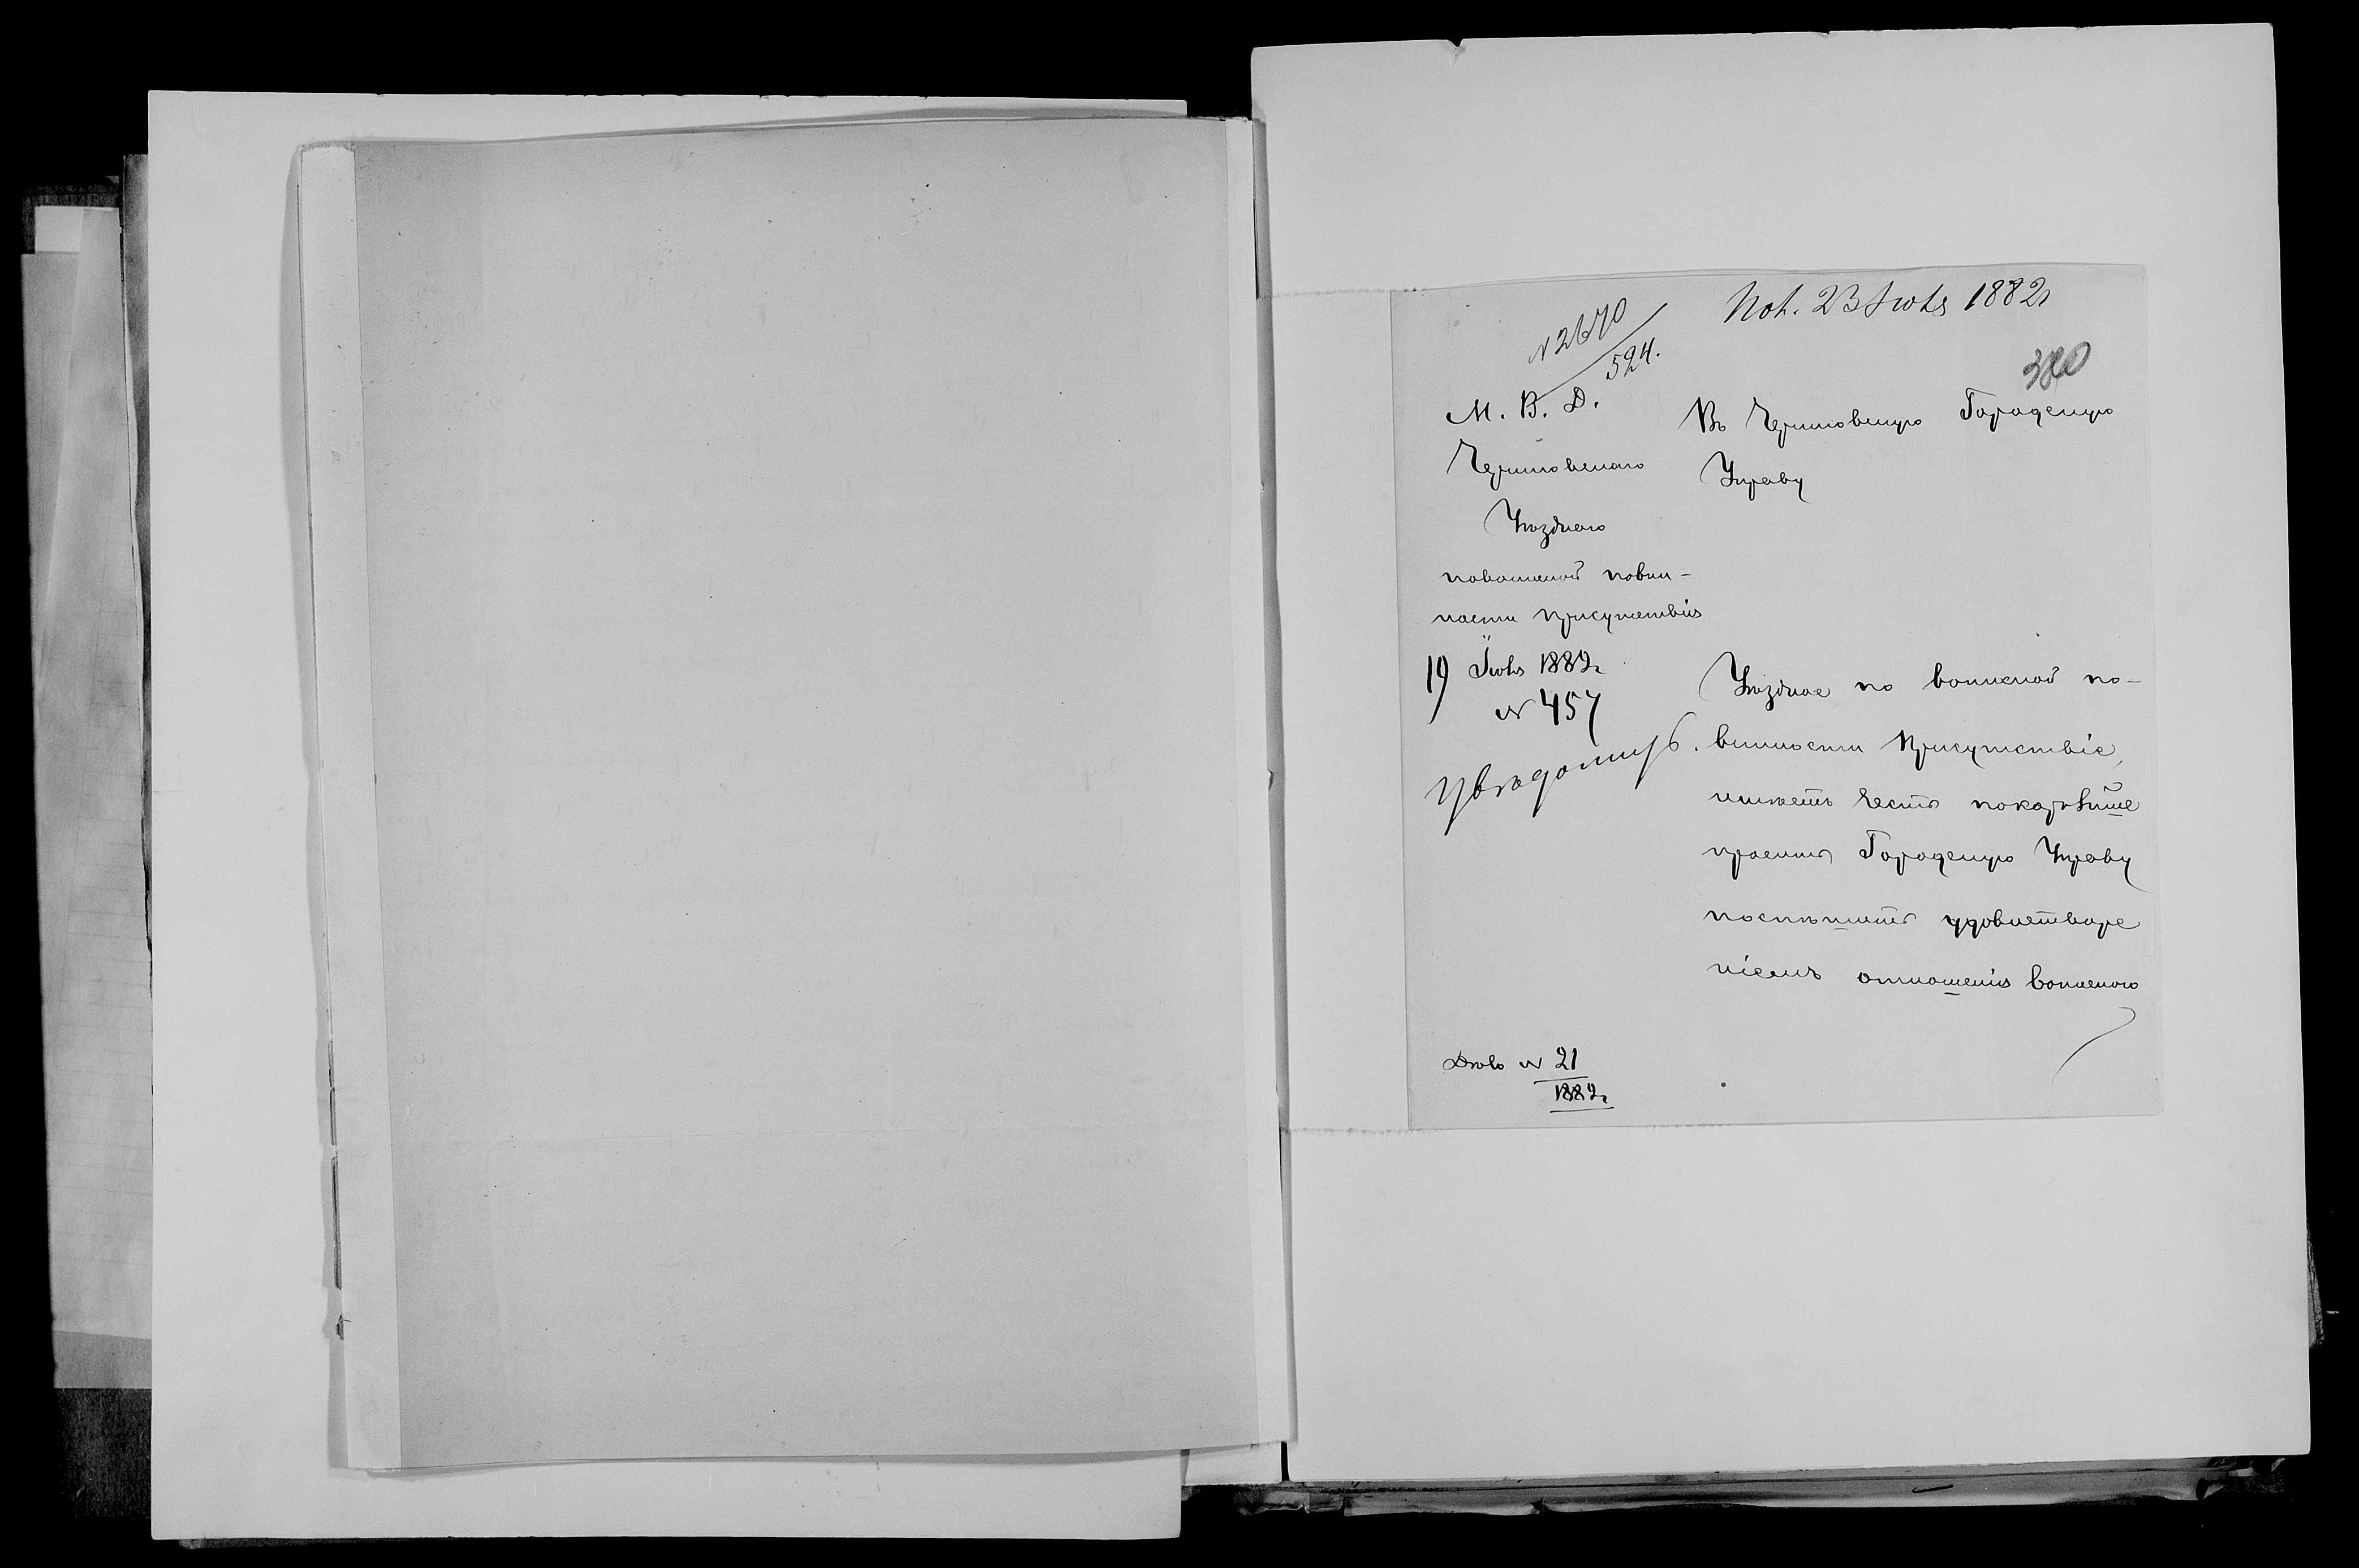 Пол. 23 Июля 1882 г
№ 2670
524.
380
М. В. Д.
Черниговскаго
Уѣзднаго
по воинской повин-
ности присутствія
19 Іюля 1882 г
№ 457
Увѣдомить.
Въ Черниговскую Городскую
Управу
Уѣздное по воинской по-
винности Присутствіе,
имѣетъ честь покорнѣйше
просить Городскую Управу
поспѣшить удовлетворе
ніемъ отношенія воинскаго
Дѣло № 21
1882 г